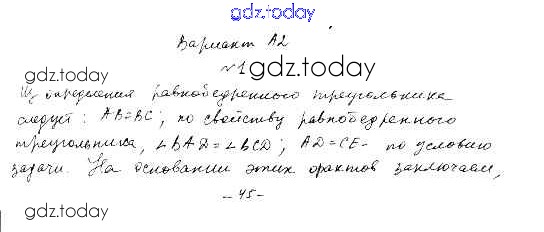 gdz.today
Вариант А2
gdz.today
№1 gdz.today
Из определения равнобедренного треугольника
следует: AB=BC; по свойству равнобедренного
треугольника, ∠BAD=∠BCD; AD=CE- по условию
задачи. На основании этих фактов заключаем,
- 45 -
gdz.today
gdz.today